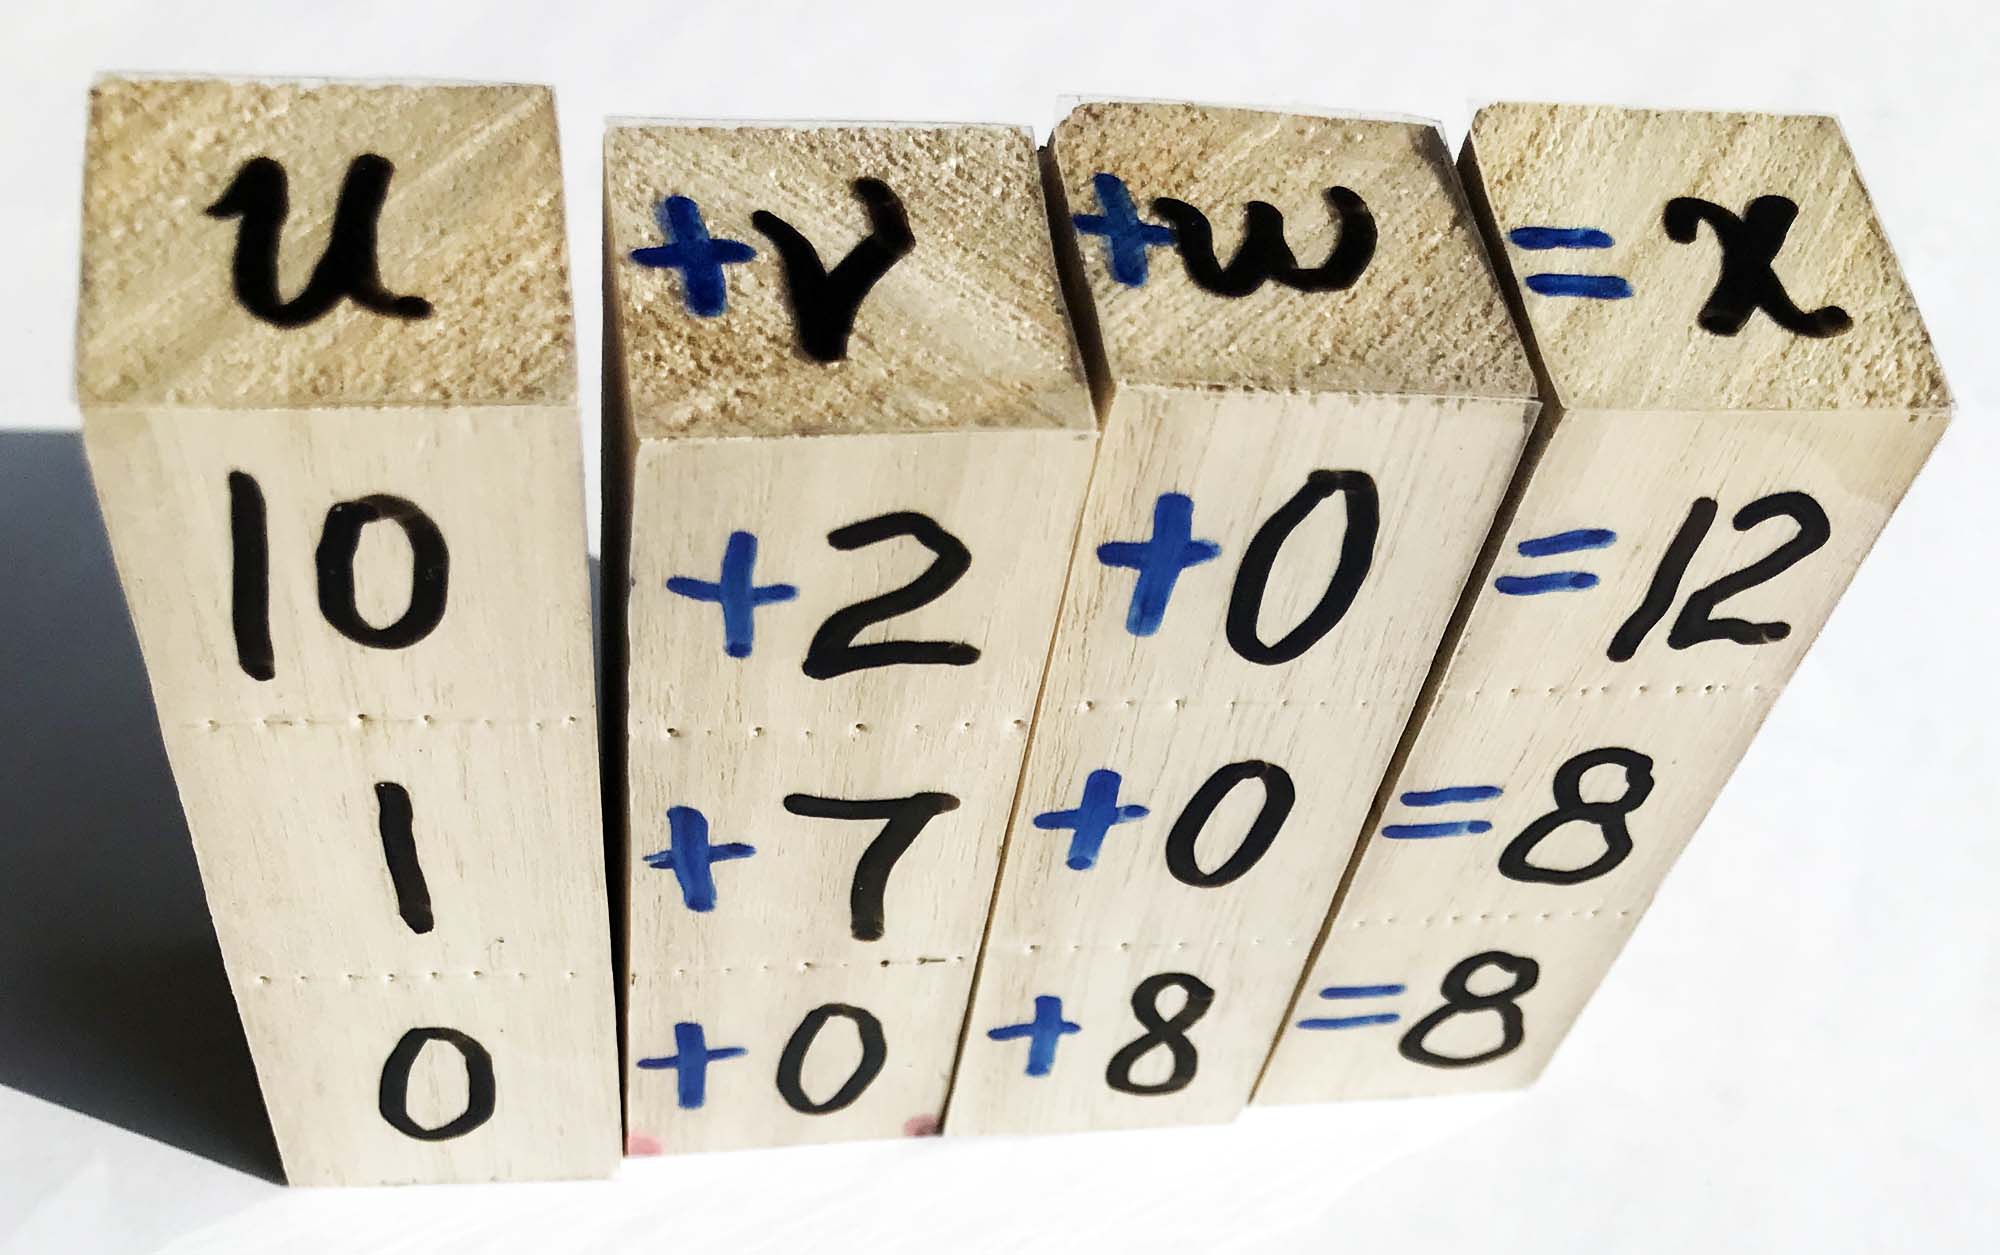 u +v +w = x
10 +2 +0 = 12
1 +7 +0 = 8
0 +0 +8 = 8